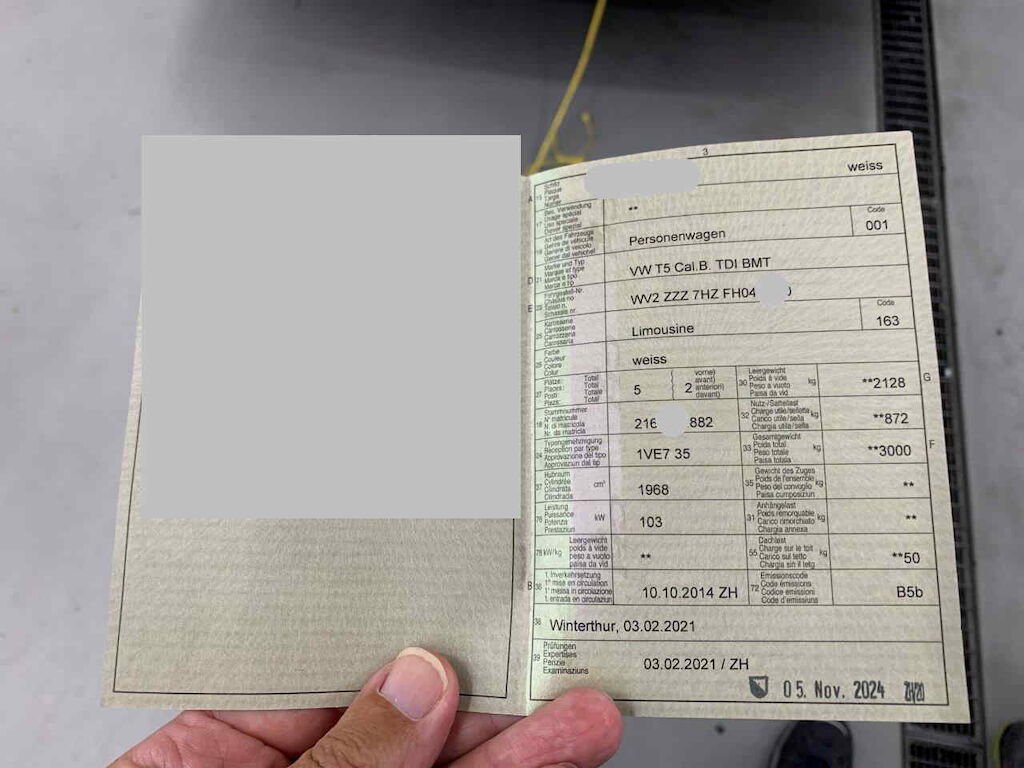 3
A 15 Schild Plaque Targa Numer weiss
17 Bes. Verwendung Usage spécial Uso speciale **
19 Art des Fahrzeugs Genre de véhicule Genere di veicolo Gener dal vehichel Personenwagen Code 001
D 21 Marke und Typ Marque et type Marca e tipo Marca e tip VW T5 Cal.B. TDI BMT
E 23 Fahrgestell-Nr. Châssis no Telaio n. Schassis nr. WV2 ZZZ 7HZ FH04
25 Karosserie Carrosserie Carrozzeria Carossaria Limousine Code 163
26 Farbe Couleur Colore Colur weiss
27 Plätze: Total Places: Total Posti: Totale Plazs: Total 5 2 vorne) avant) anteriori) davant) 30 Leergewicht Poids à vide Peso a vuoto Paisa da vid kg **2128 G
18 Stammnummer N° matricule N. di matricola Nr. da matricla 216 882 32 Nutz-/Sattellast Charge utile/sellette Carico utile/sella Chargia utila/sella kg **872
24 Typengenehmigung Réception par type Approvazione del tipo Approvaziun dal tip 1VE7 35 33 Gesamtgewicht Poids total Peso totale Paisa totala kg **3000 F
37 Hubraum Cylindrée Cilindrata Cilindrada cm³ 1968 35 Gewicht des Zuges Poids de l'ensemble Peso del convoglio Paisa cumposiziun kg **
76 Leistung Puissance Potenza Prestaziun kW 103 31 Anhängelast Poids remorquable Carico rimorchiato Chargia annexa kg **
78 kW/kg Leergewicht poids à vide peso a vuoto paisa da vid ** 55 Dachlast Charge sur le toit Carico sul tetto Chargia sin il tetg kg **50
B 36 1. Inverkehrsetzung 1re mise en circulation 1a messa in circolazione 1. entrada en circulaziun 10.10.2014 ZH 72 Emissionscode Code émissions Codice emissioni Code d'emissiuns B5b
38 Winterthur, 03.02.2021
39 Prüfungen Expertises Perizie Examinaziuns 03.02.2021 / ZH
05. Nov. 2024 ZH20